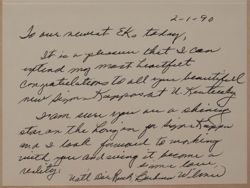 2-1-90
To our newest EKs today,
It is a pleasure that I can
extend my most heartfelt
congratulations to all you beautiful
new Sigma Kappas at U Kentucky
I am sure you are a shining
star on the horizon for Sigma Kappa
and I look forward to working
with you and seeing it become a
reality!
Sigma Love,
Natl Dir Rush, Barbara